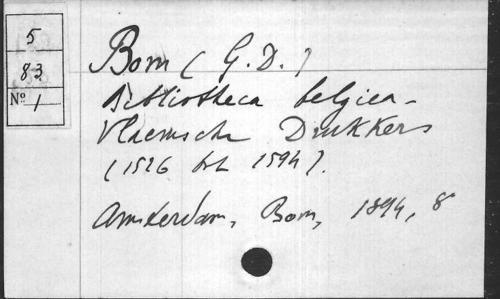 5
83
Nº 1
Bom (G.D.)
Bibliotheca belgica -
Vlaemsche Drukkers
(1526 tot 1594).
Amsterdam, Bom, 1894, 8º